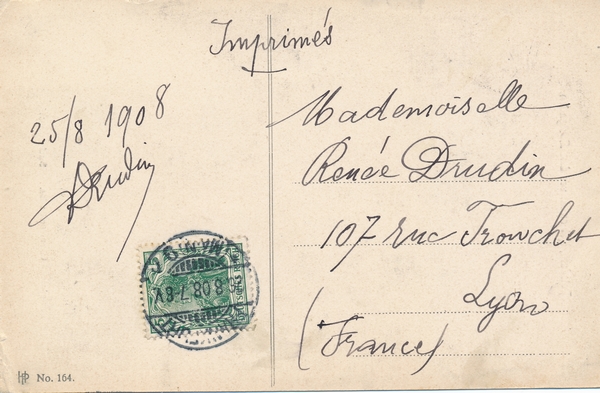 Imprimés
25/8 1908
Drudin
Mademoiselle
Renée Drudin
107 rue Tronchet
Lyon
(France)
8.08.7-8V
No. 164.